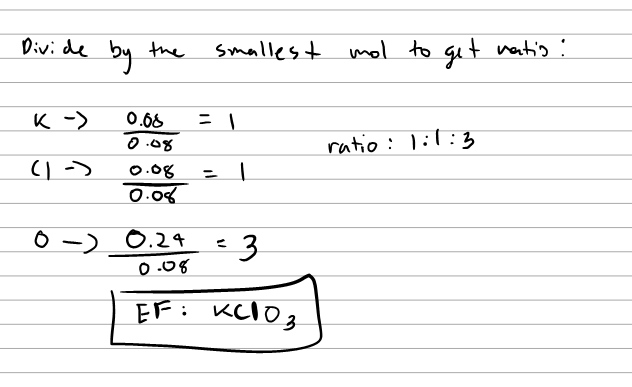 Divide by the smallest mol to get ratio:
K -> 0.08 / 0.08 = 1
ratio: 1:1:3
Cl -> 0.08 / 0.08 = 1
O -> 0.24 / 0.08 = 3
EF: KClO3